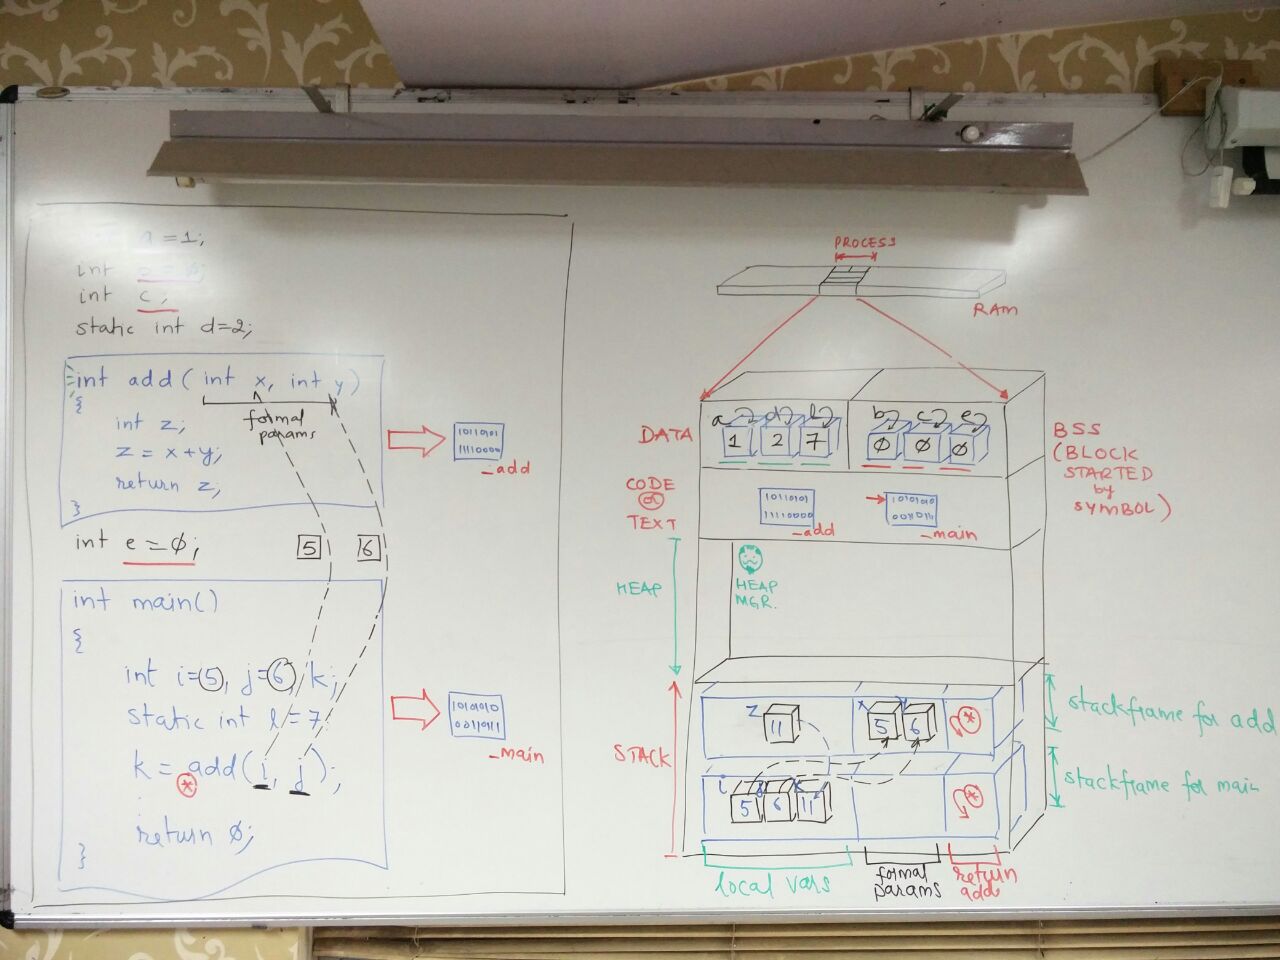 a = 1;
int b = 0;
int c;
static int d=2;
int add( int x, int y)
{
formal
params
int z;
z = x+y;
return z;
}
10110101
11110000
_add
int e = 0;
5 6
int main()
{
int i=5, j=6, k;
static int l = 7;
k = add(i, j);
*
return 0;
}
10101010
0011011
_main
PROCESS
RAM
DATA
a d l
1 2 7
b c e
0 0 0
BSS
(BLOCK
STARTED
by
SYMBOL)
CODE
or
TEXT
10110101
11110000
_add
_main
HEAP
HEAP
MGR.
STACK
z x y
11 5 6 *
stackframe for add
i j k
5 6 11 *
stackframe for main
local vars
formal
params
return
add